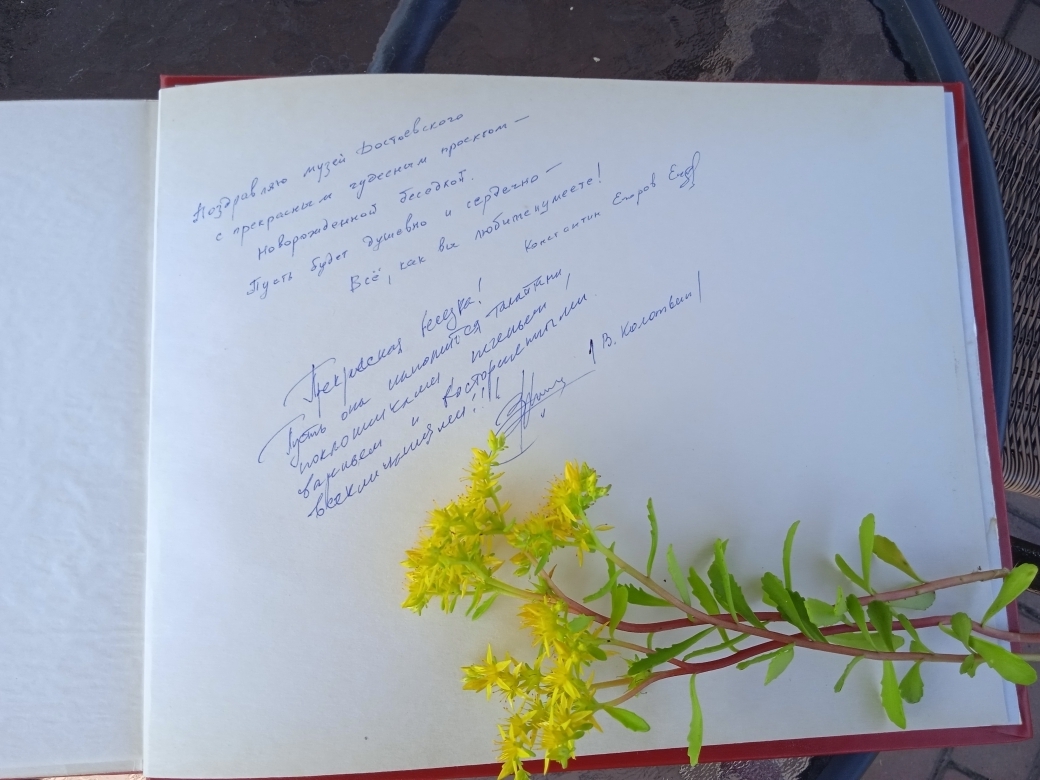 Поздравляю музей Достоевского
с прекрасным чудесным проектом –
Новорожденной беседкой.
Пусть будет душевно и сердечно –
Всё, как вы любите и умеете!
Константин Егоров
Прекрасная беседка!
Пусть она наполнится талантами,
поклонниками, пеньем,
и восторженными
восклицаниями!!!
/В. Колотвин/